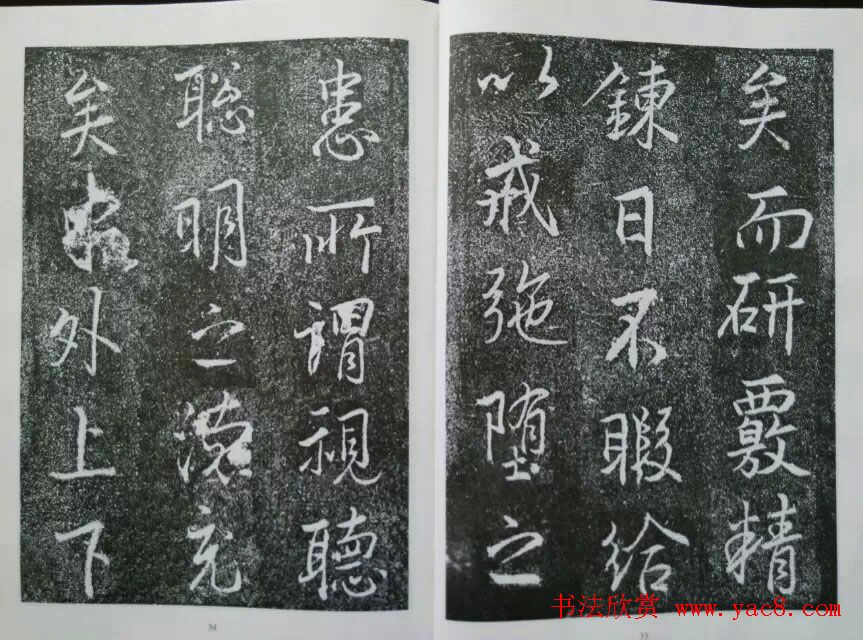 矣而研覈精
鍊日不暇給
以戒弛堕之
患所謂視聽
聡明之充
矣外上下
34
33
书法欣赏 www.yac8.com